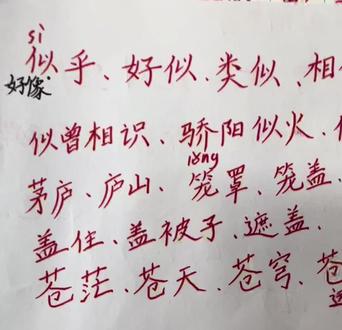 sì
似乎、好似、类似、相
好像
似曾相识、骄阳似火、
lǒng
茅庐、庐山、笼罩、笼盖、
盖住、盖被子、遮盖、
苍茫、苍天、苍穹、苍